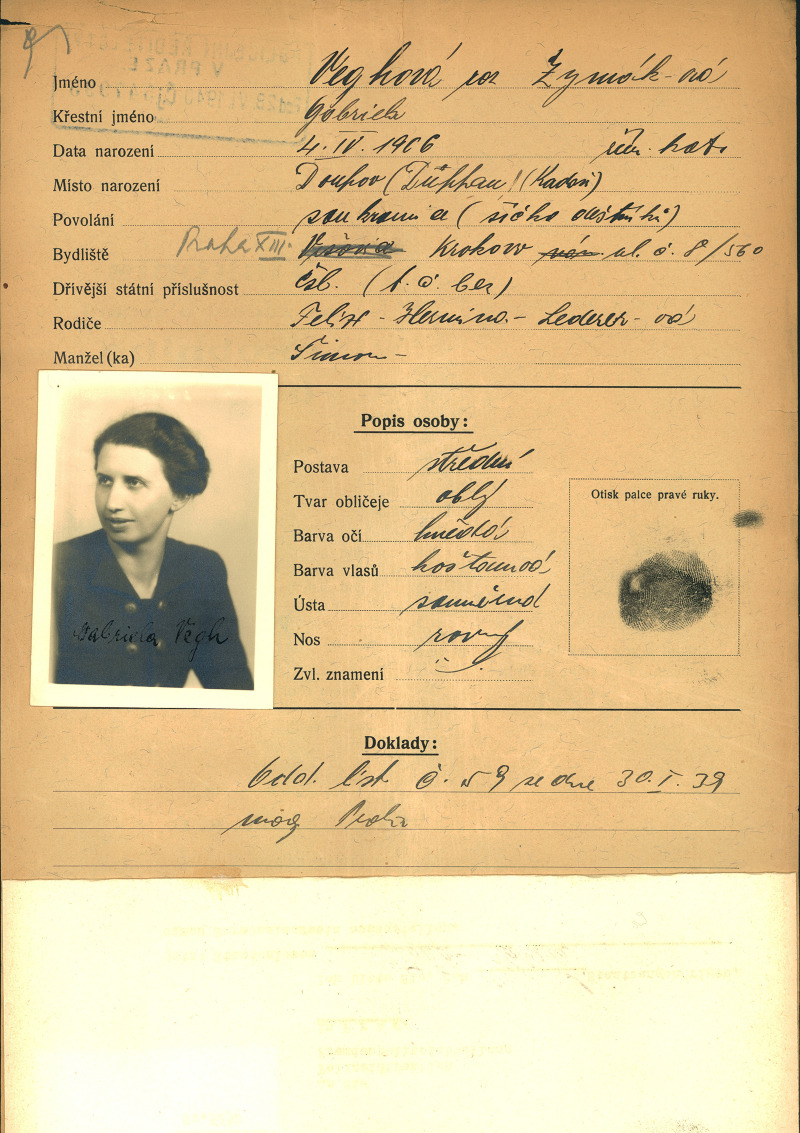 Jméno Veghová roz Zymák-ová
Křestní jméno Gabriela
Data narození 4. IV. 1906 řím. kat.
Místo narození Doupov (Duppau) (Kadaň)
Povolání soukromá (šička deštníků)
Bydliště Praha XIII. Krokova ul. č. 8/560
Dřívější státní příslušnost čsl.
Rodiče Felix - Hermina - Lederer - ová
Manžel (ka) Šimon -
Popis osoby:
Postava střední
Tvar obličeje oblý
Barva očí hnědá
Barva vlasů kaštanová
Ústa souměrná
Nos rovný
Zvl. znamení
Otisk palce pravé ruky.
Gabriela Vegh
Doklady:
Odd. list č. 59 ze dne 30. I. 39
mag Praha